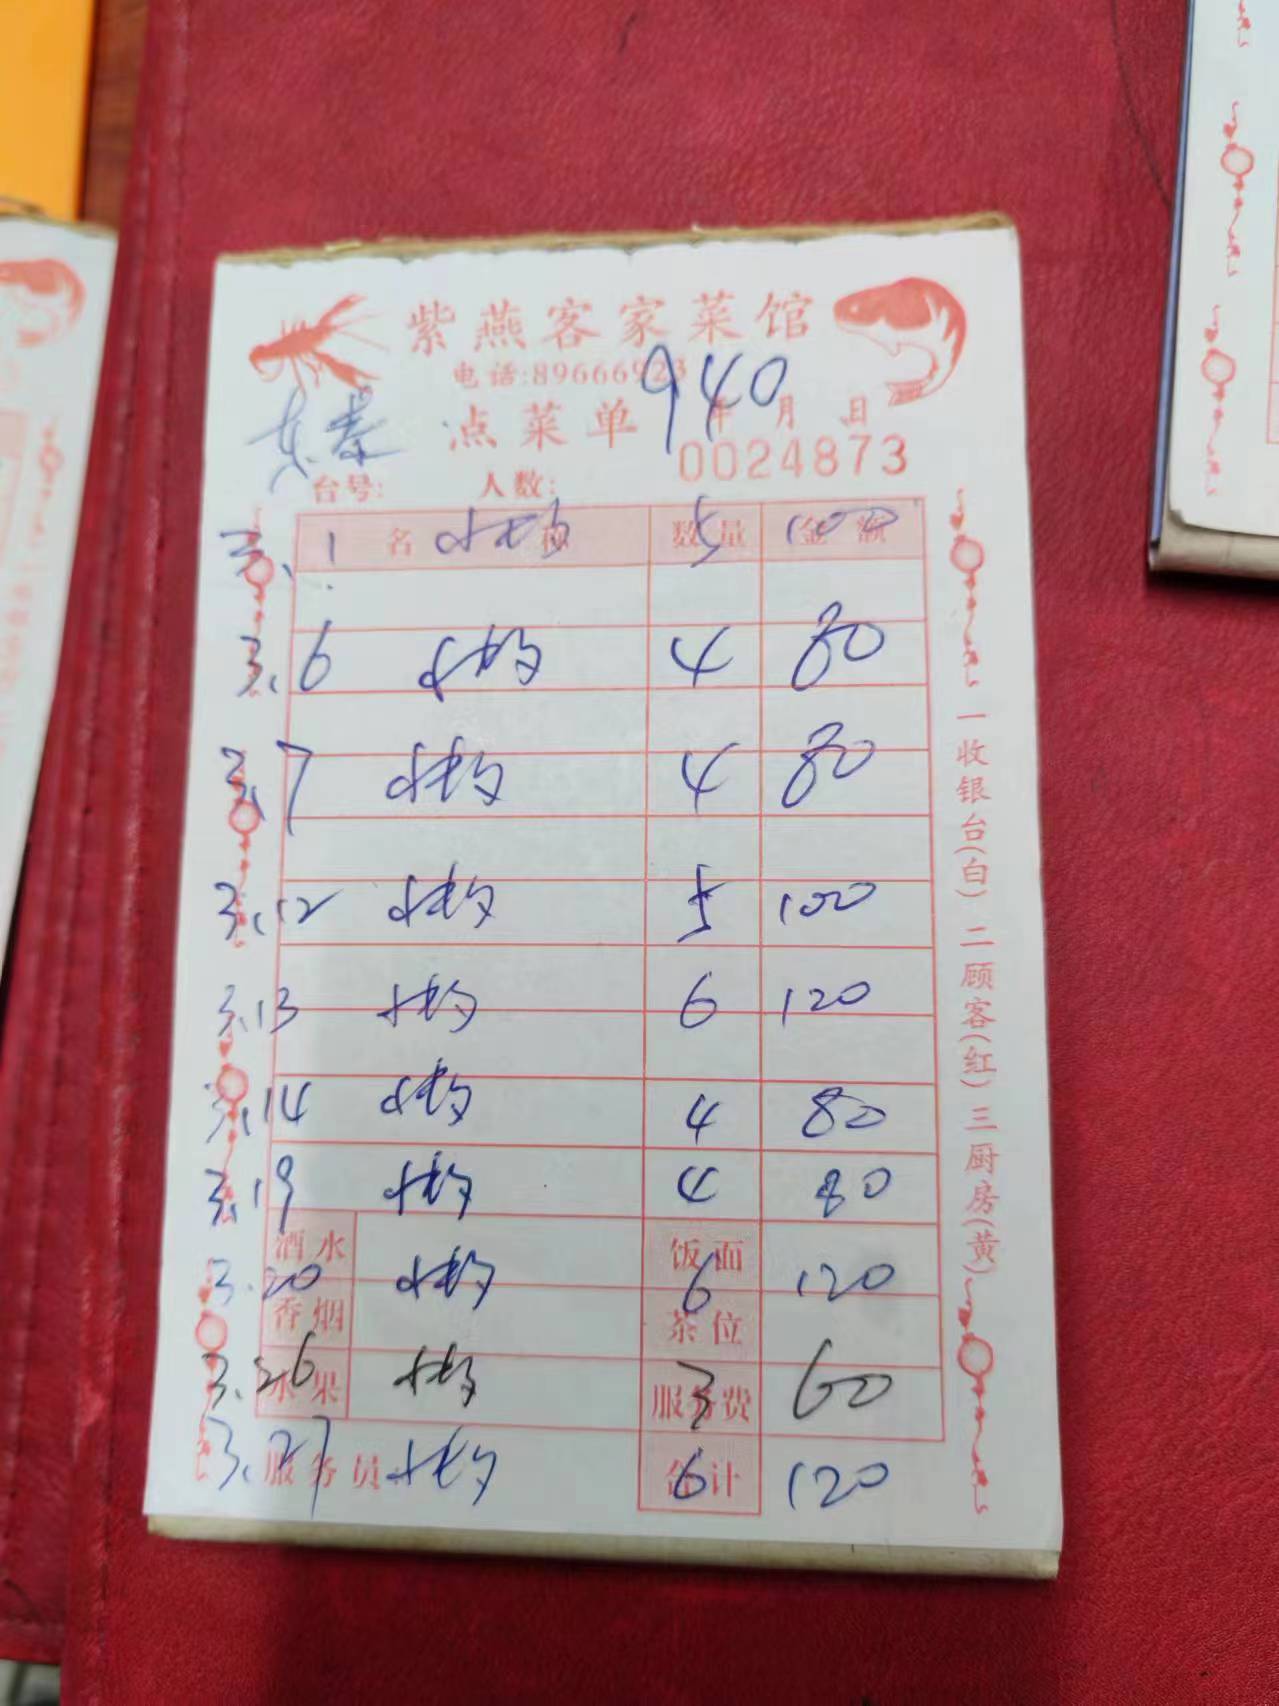 紫燕客家菜馆
电话:89666923
940
点菜单 年 月 日
0024873
台号: 人数:
名 称 数量 金额
3.1 5 100
3.6 4 80
3.7 4 80
3.12 5 100
3.13 6 120
3.14 4 80
3.19 4 80
酒水 饭面
3.20 6 120
香烟 茶位
3.26 3 60
水果 服务费
3.27 6 120
服务员 合计
一收银台(白) 二顾客(红) 三厨房(黄)